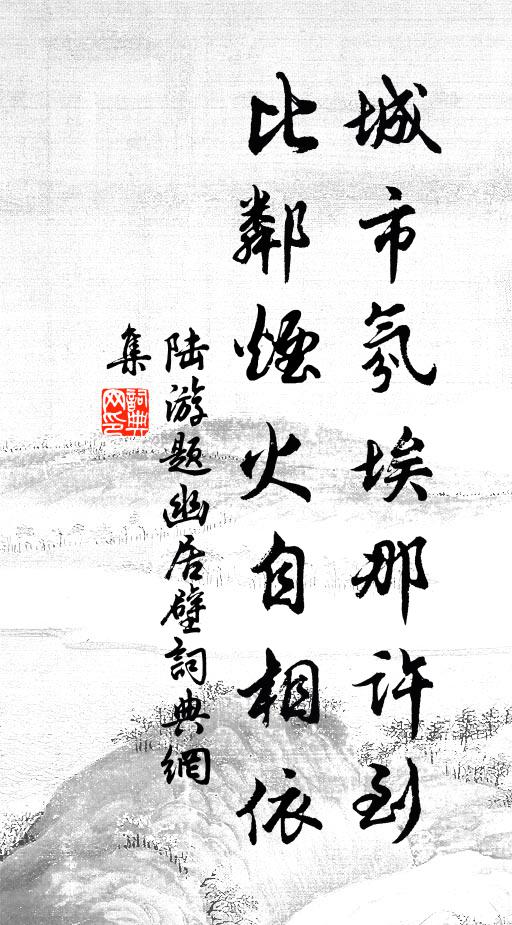 城市氛埃那许到
比鄰煙火自相依
陆游题幽居壁詞典網
集
詞典网印